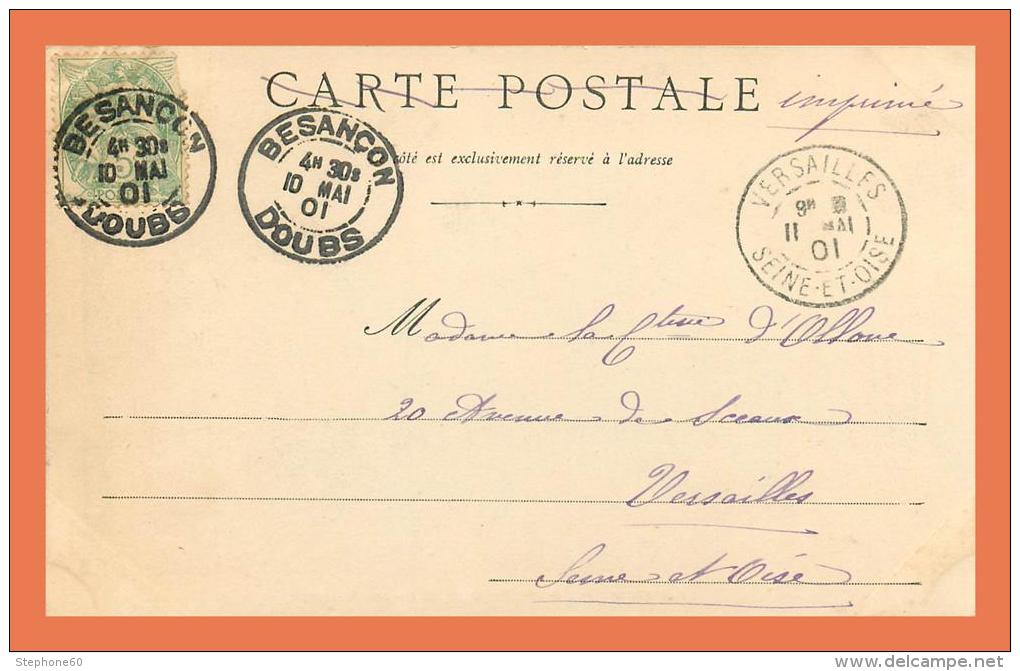 CARTE POSTALE imprimé
côté est exclusivement réservé à l'adresse
BESANÇON
4H 30s
10 MAI
01
DOUBS
BESANÇON
4H 30s
10 MAI
01
DOUBS
VERSAILLES
11 MAI
01
SEINE-ET-OISE
Madame la Ctesse d'Ollone
20 Avenue de Sceaux
Versailles
Seine et Oise
Stephone60
www.delcampe.net